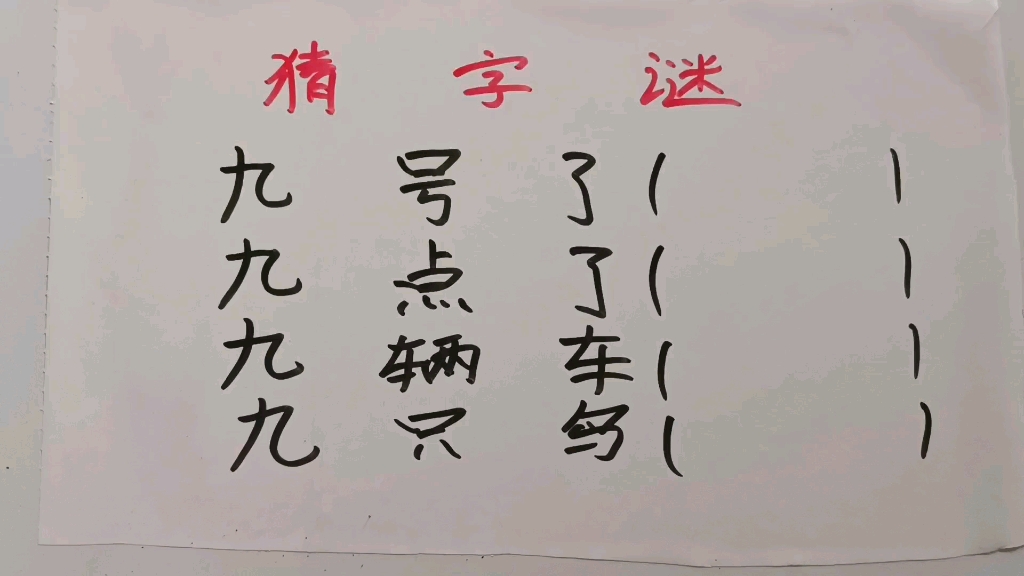 猜字谜
九号了( )
九点了( )
九辆车( )
九只鸟( )